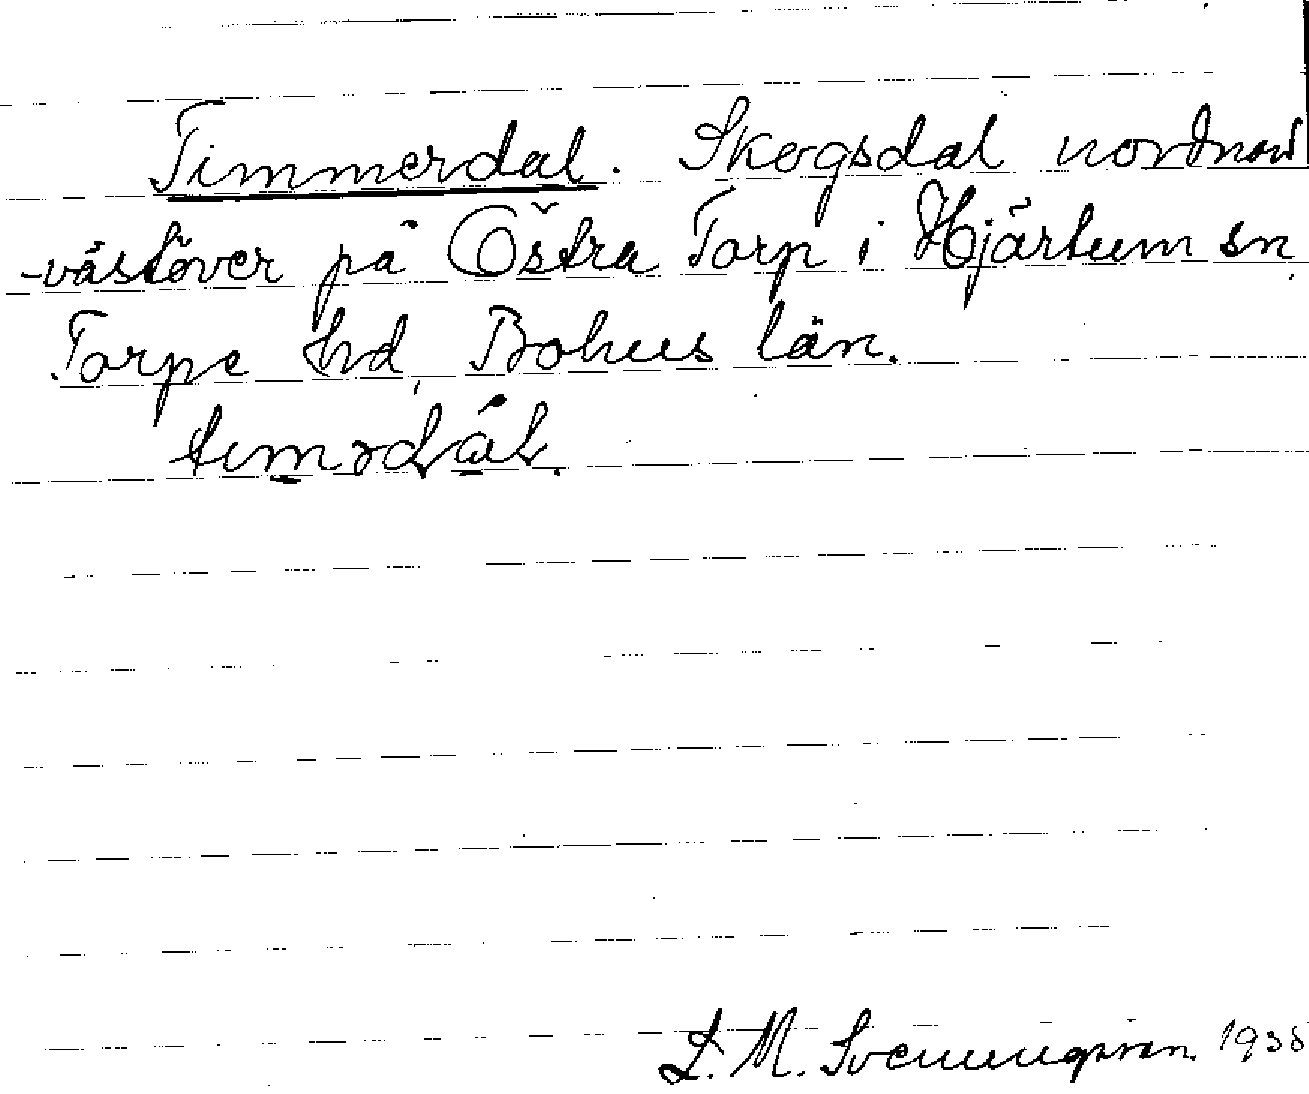 Timmerdal. Skogsdal nordnord
-västöver på Östra Torp i Hjärtum sn
Torpe hd, Bohus län.
L. M. Svenungsson 1938